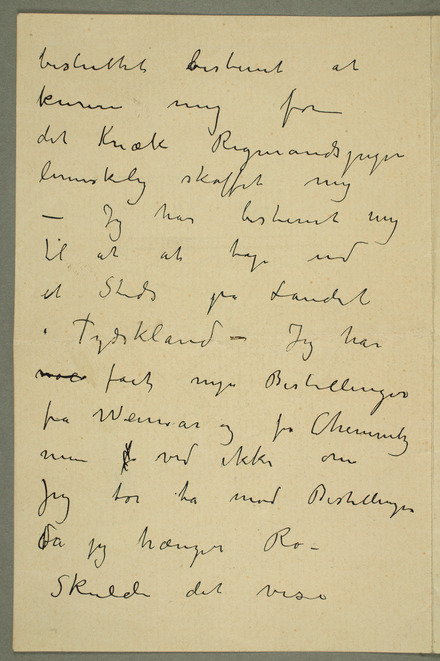 besluttet bestemt at
kurere mig for
det Knæk Rigmandspigen
lumskelig skaffet mig
— Jeg har bestemt mig
til at at tage ud
et Steds på Landet
i Tydskland – Jeg har
faaet nye Bestillinger
fra Weimar og fra Chemnitz
men ved ikke om
Jeg tor ta mod Bestillinger
Da jeg trænger Ro –
Skulde det vise